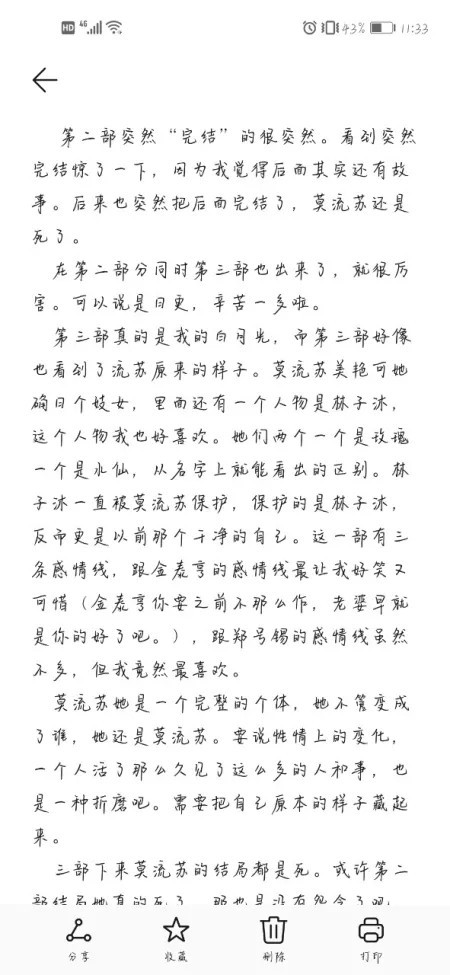 HD 4G 43% 11:33
第二部突然“完结”的很突然。看到突然
完结惊了一下，因为我觉得后面其实还有故
事。后来也突然把后面完结了，莫流苏还是
死了。
在第二部分同时第三部也出来了，就很厉
害。可以说是日更，辛苦一多啦。
第三部真的是我的白月光，而第三部好像
也看到了流苏原来的样子。莫流苏美艳可她
确日个妓女，里面还有一个人物是林子沐，
这个人物我也好喜欢。她们两个一个是玫瑰
一个是水仙，从名字上就能看出的区别。林
子沐一直被莫流苏保护，保护的是林子沐，
反而更是以前那个干净的自己。这一部有三
条感情线，跟金泰亨的感情线最让我好笑又
可惜（金泰亨你要之前不那么作，老婆早就
是你的好了吧。），跟郑号锡的感情线虽然
不多，但我竟然最喜欢。
莫流苏她是一个完整的个体，她不管变成
了谁，她还是莫流苏。要说性情上的变化，
一个人活了那么久见了这么多的人和事，也
是一种折磨吧。需要把自己原本的样子藏起
来。
三部下来莫流苏的结局都是死。或许第二
部结局她真的死了，那也是没有怨念了吧
分享 收藏 删除 打印